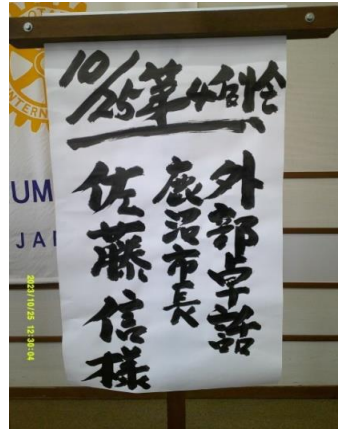 10/25 第4例会
外部卓話
鹿沼市長
佐藤信様
UM
JA
2023/10/25 12:30:04